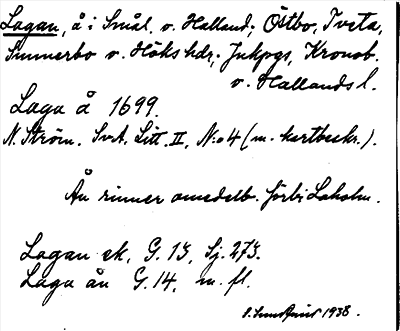 Lagan, å i Smål. o. Halland; Östbo, Tveta,
Sunnerbo o. Höks hdr; Jnkpgs, Kronob.
o. Hallands l.
Laga å 1699.
N. Ström. SvA. Litt. II, N:o 4 (m. kartbeskr.).
Ån rinner omedelb. förbi Laholm.
Lagan ek. G. 13, Sj. 273.
Laga ån G. 14, m. fl.
1938.